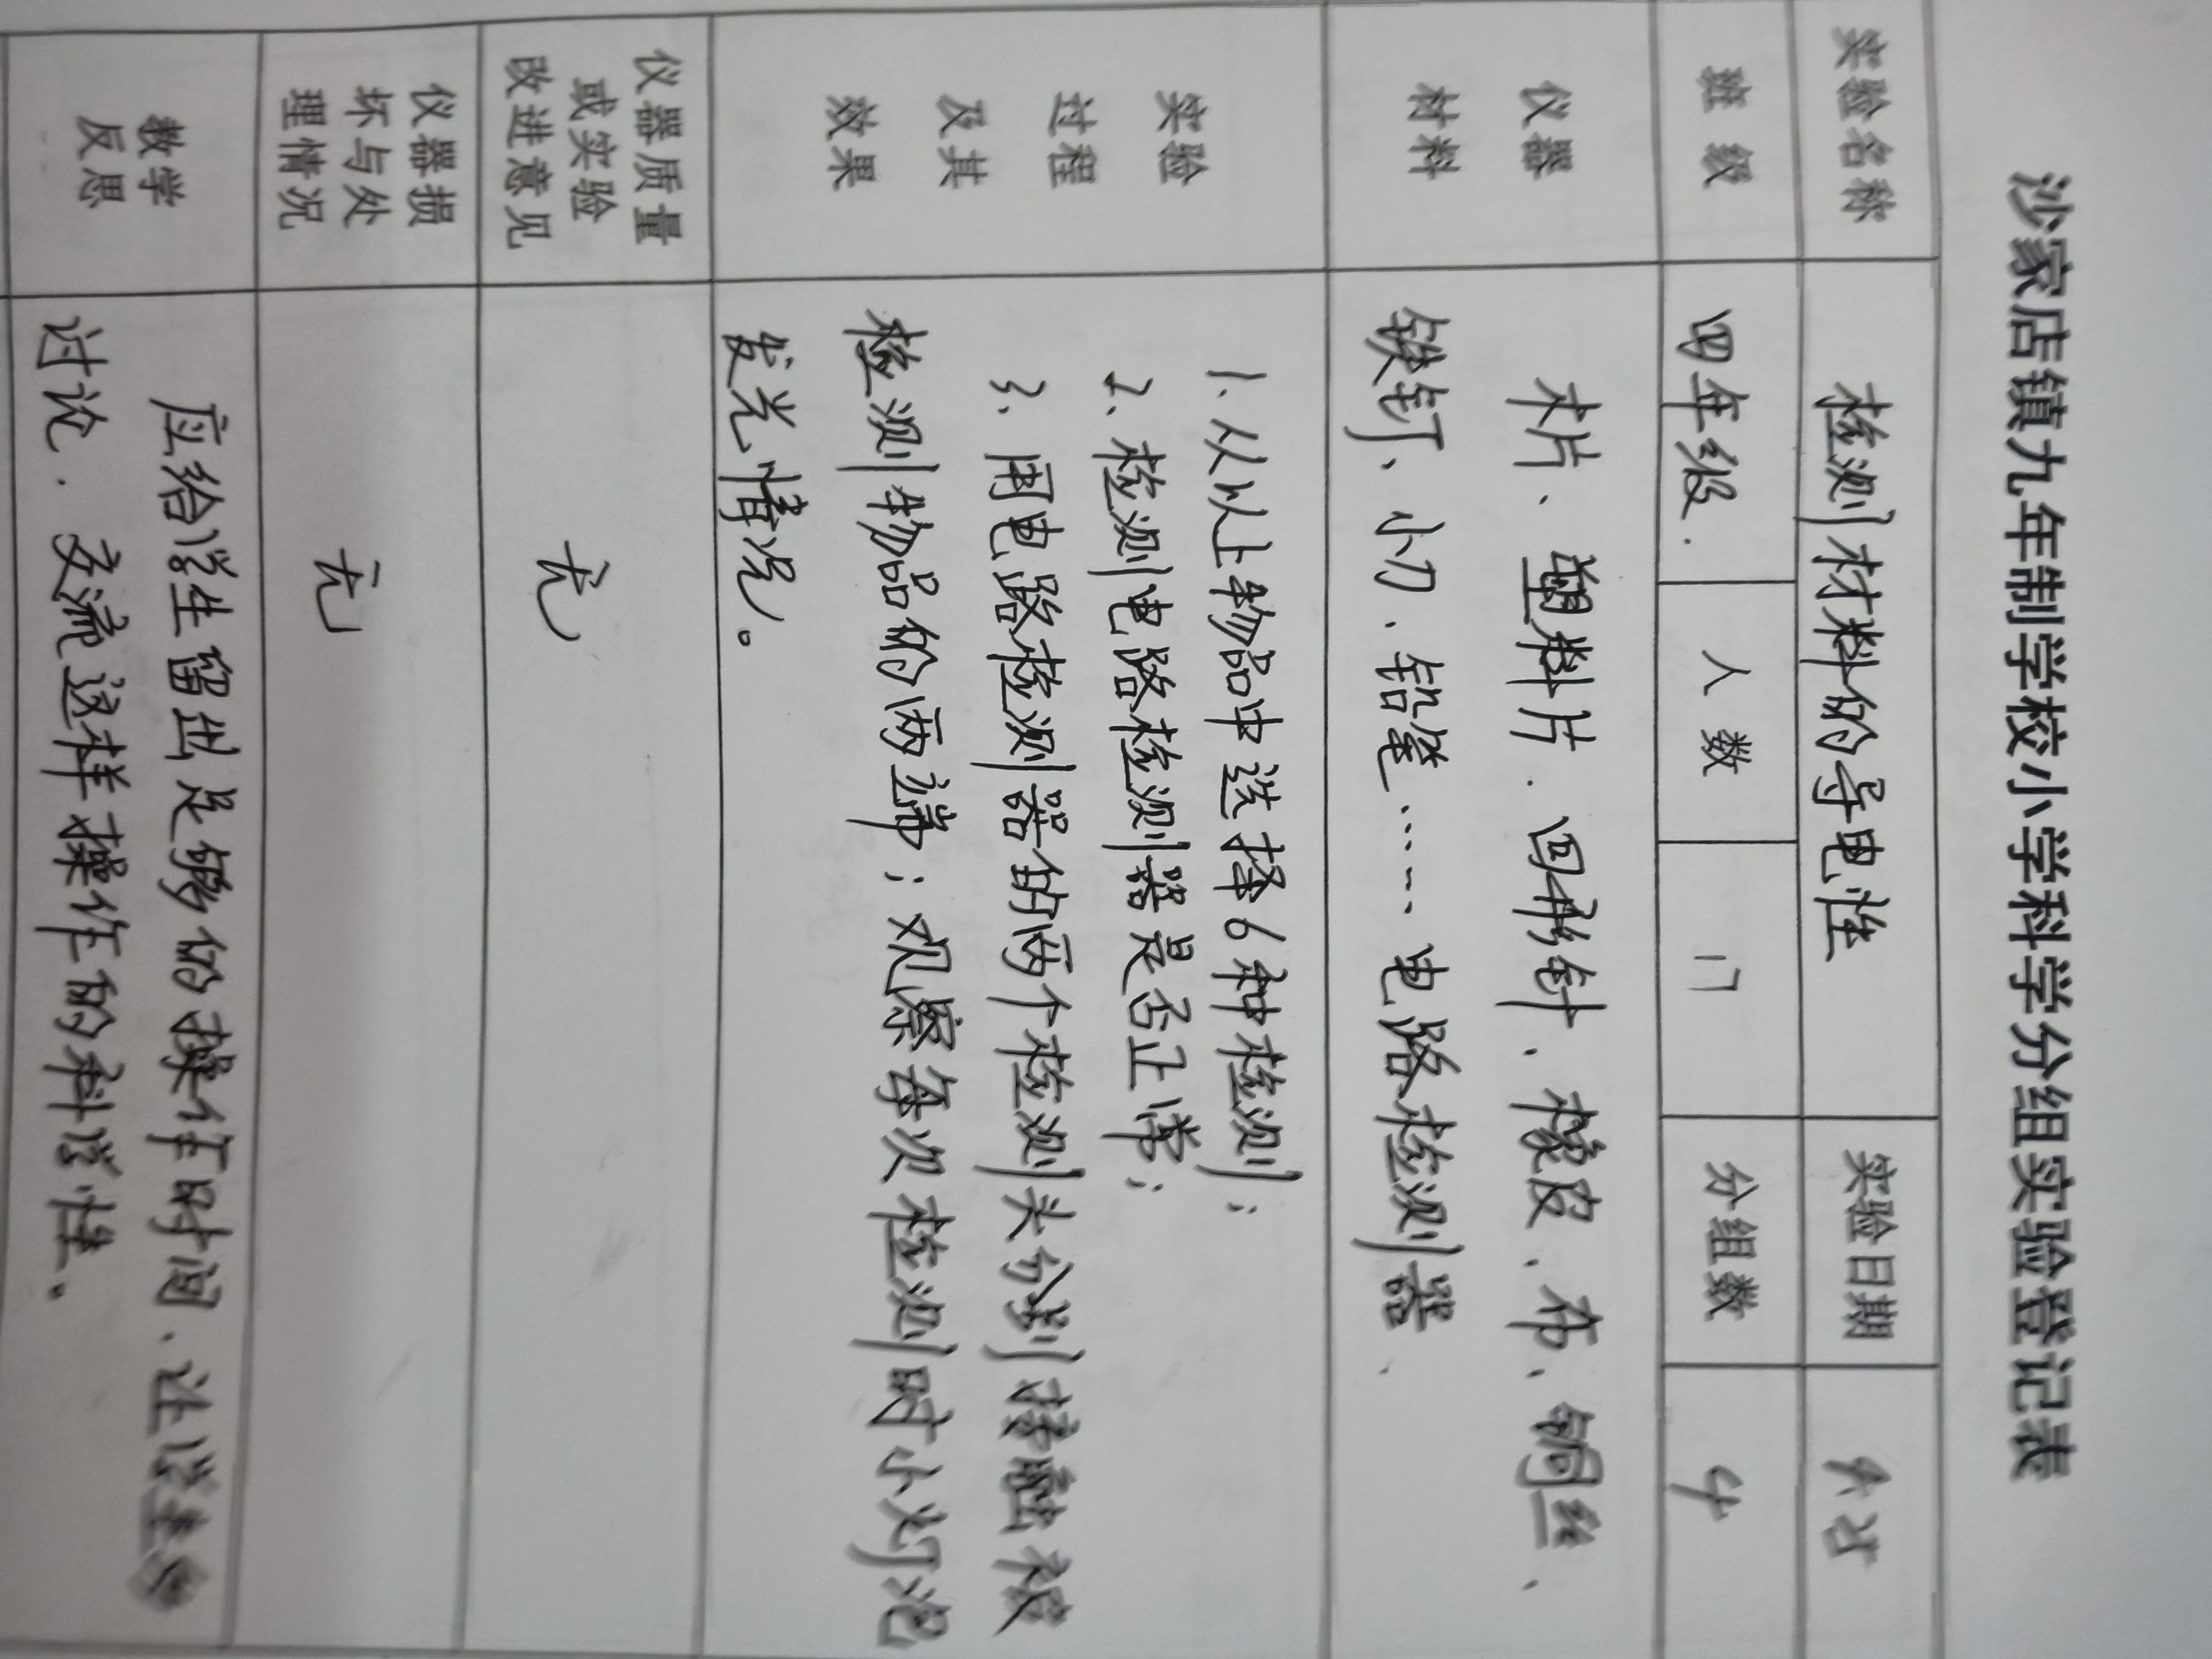 沙家店镇九年制学校小学科学分组实验登记表
实验名称 检测材料的导电性 实验日期
班级 四年级. 人数 17 分组数 4
仪器 木片、塑料片.回形针、橡皮、布、铜丝、
材料 铁钉、小刀、铅笔…… 电路检测器、
实验 1.从以上物品中选择6种检测;
过程 2、检测电路检测器是否正常;
及其 3、用电路检测器的两个检测头分别接触被
效果 检测物品的两端;观察每次检测时小灯泡
发光情况。
仪器质量
或实验 无
改进意见
仪器损
坏与处 无
理情况
教学 应给学生留出足够的操作时间、让学生
反思 讨论.交流这样操作的科学性、